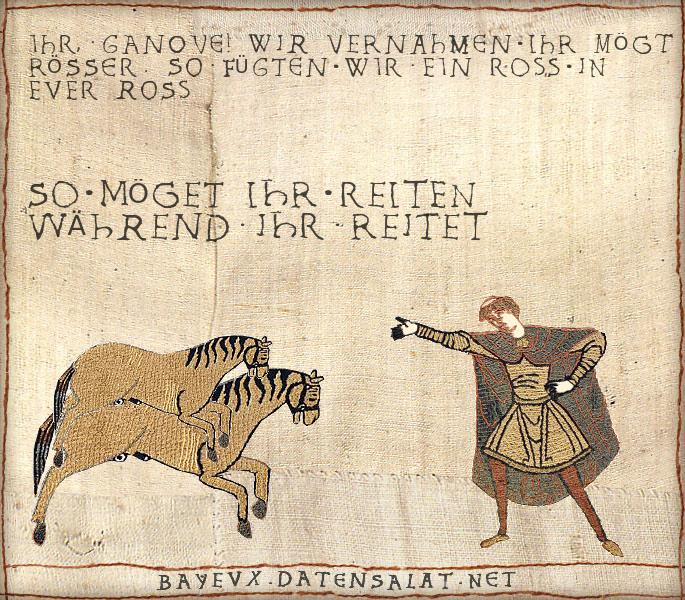 IHR, GANOVE! WIR VERNAHMEN·IHR MÖGT
RÖSSER. SO·FÜGTEN·WIR·EIN ROSS·IN
EVER ROSS
SO·MÖGET IHR·REITEN
WÄHREND·IHR·REITET
BAYEVX.DATENSALAT.NET